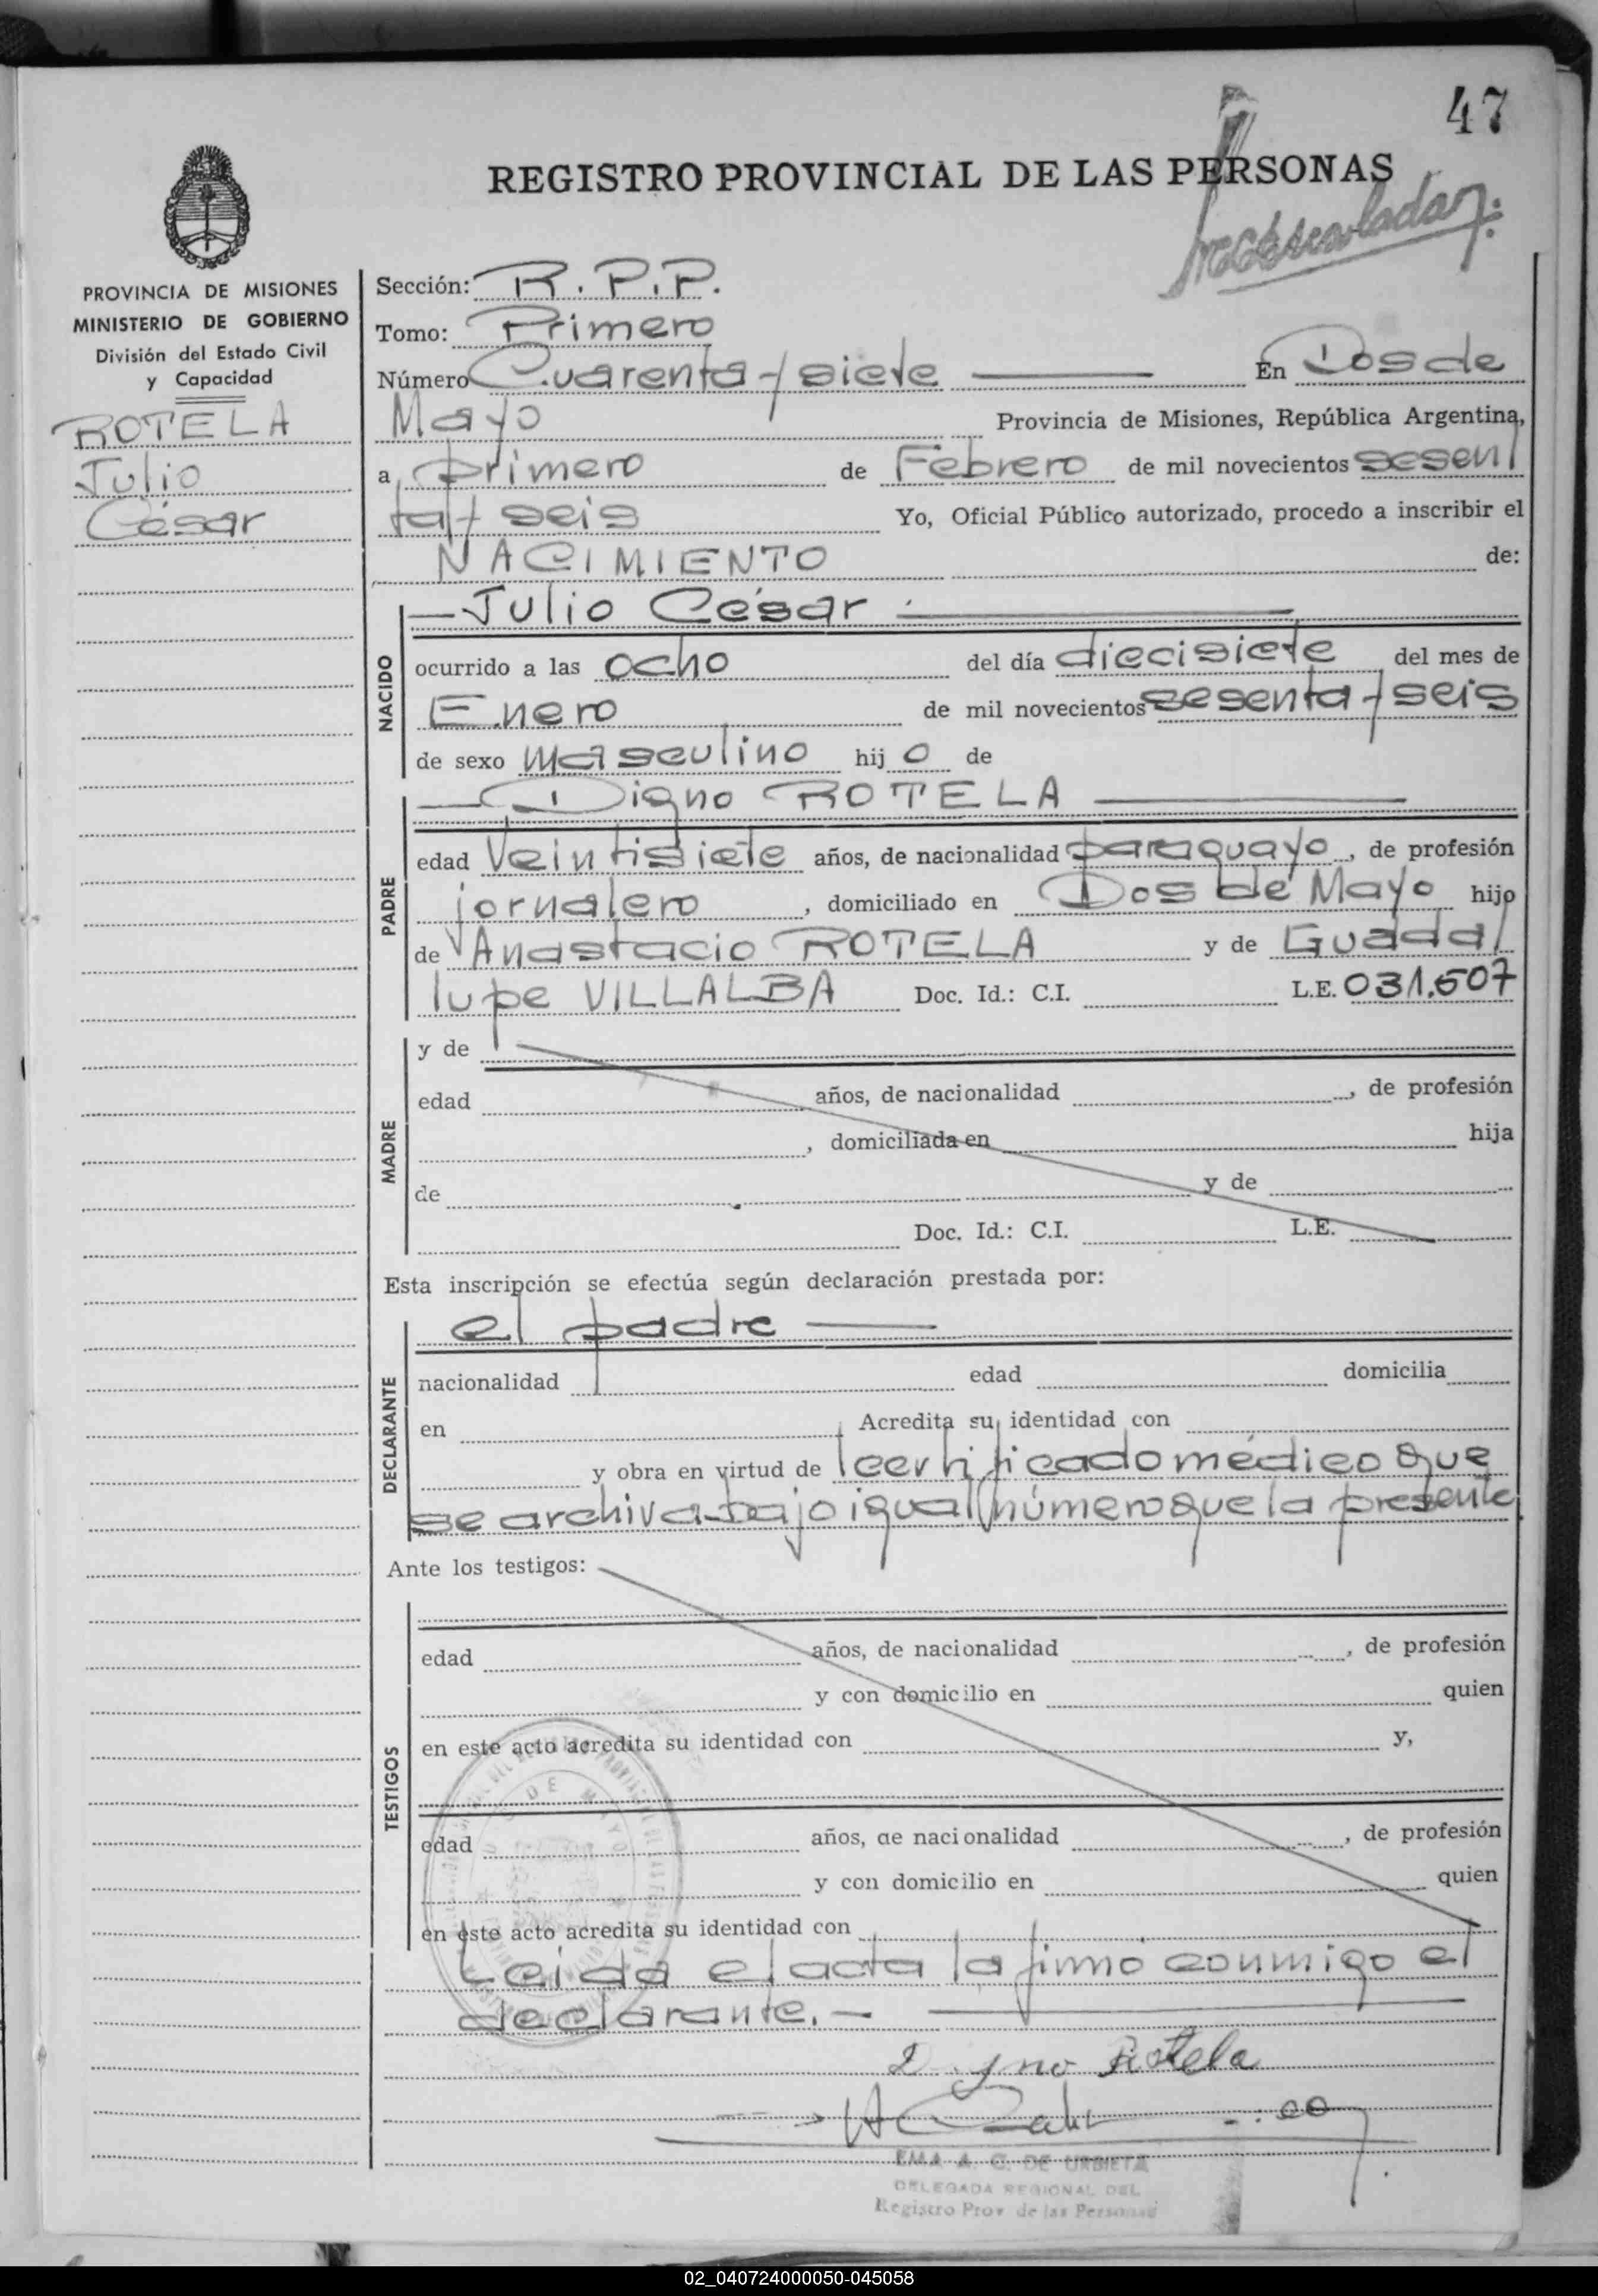 47
REGISTRO PROVINCIAL DE LAS PERSONAS
PROVINCIA DE MISIONES
MINISTERIO DE GOBIERNO
División del Estado Civil
y Capacidad
ROTELA
Julio
César
Sección: R.P.P.
Tomo: Primero
Número Cuarenta y siete En Dos de
Mayo Provincia de Misiones, República Argentina,
a primero de Febrero de mil novecientos sesen
ta y seis Yo, Oficial Público autorizado, procedo a inscribir el
NACIMIENTO de:
NACIDO
Julio César
ocurrido a las ocho del día diecisiete del mes de
Enero de mil novecientos sesenta y seis
de sexo masculino hij o de
PADRE
Digno ROTELA
edad Veintisiete años, de nacionalidad paraguayo, de profesión
jornalero, domiciliado en Dos de Mayo hijo
de Anastacio ROTELA y de Guada
lupe VILLALBA Doc. Id.: C.I. L.E. 031.507
MADRE
y de
edad años, de nacionalidad , de profesión
, domiciliada en hija
de y de
Doc. Id.: C.I. L.E.
Esta inscripción se efectúa según declaración prestada por:
DECLARANTE
el padre
nacionalidad edad domicilia
en Acredita su identidad con
y obra en virtud de certificado médico que
se archiva bajo igual número que la presente
Ante los testigos:
TESTIGOS
edad años, de nacionalidad , de profesión
y con domicilio en quien
en este acto acredita su identidad con y,
edad años, de nacionalidad , de profesión
y con domicilio en quien
en este acto acredita su identidad con
Leida el acta la firmó conmigo el
declarante.-
DE MAYO
Digno Rotela
EMA A. C. DE URBIETA
DELEGADA REGIONAL DEL
Registro Prov de las Personas
02_040724000050-045058